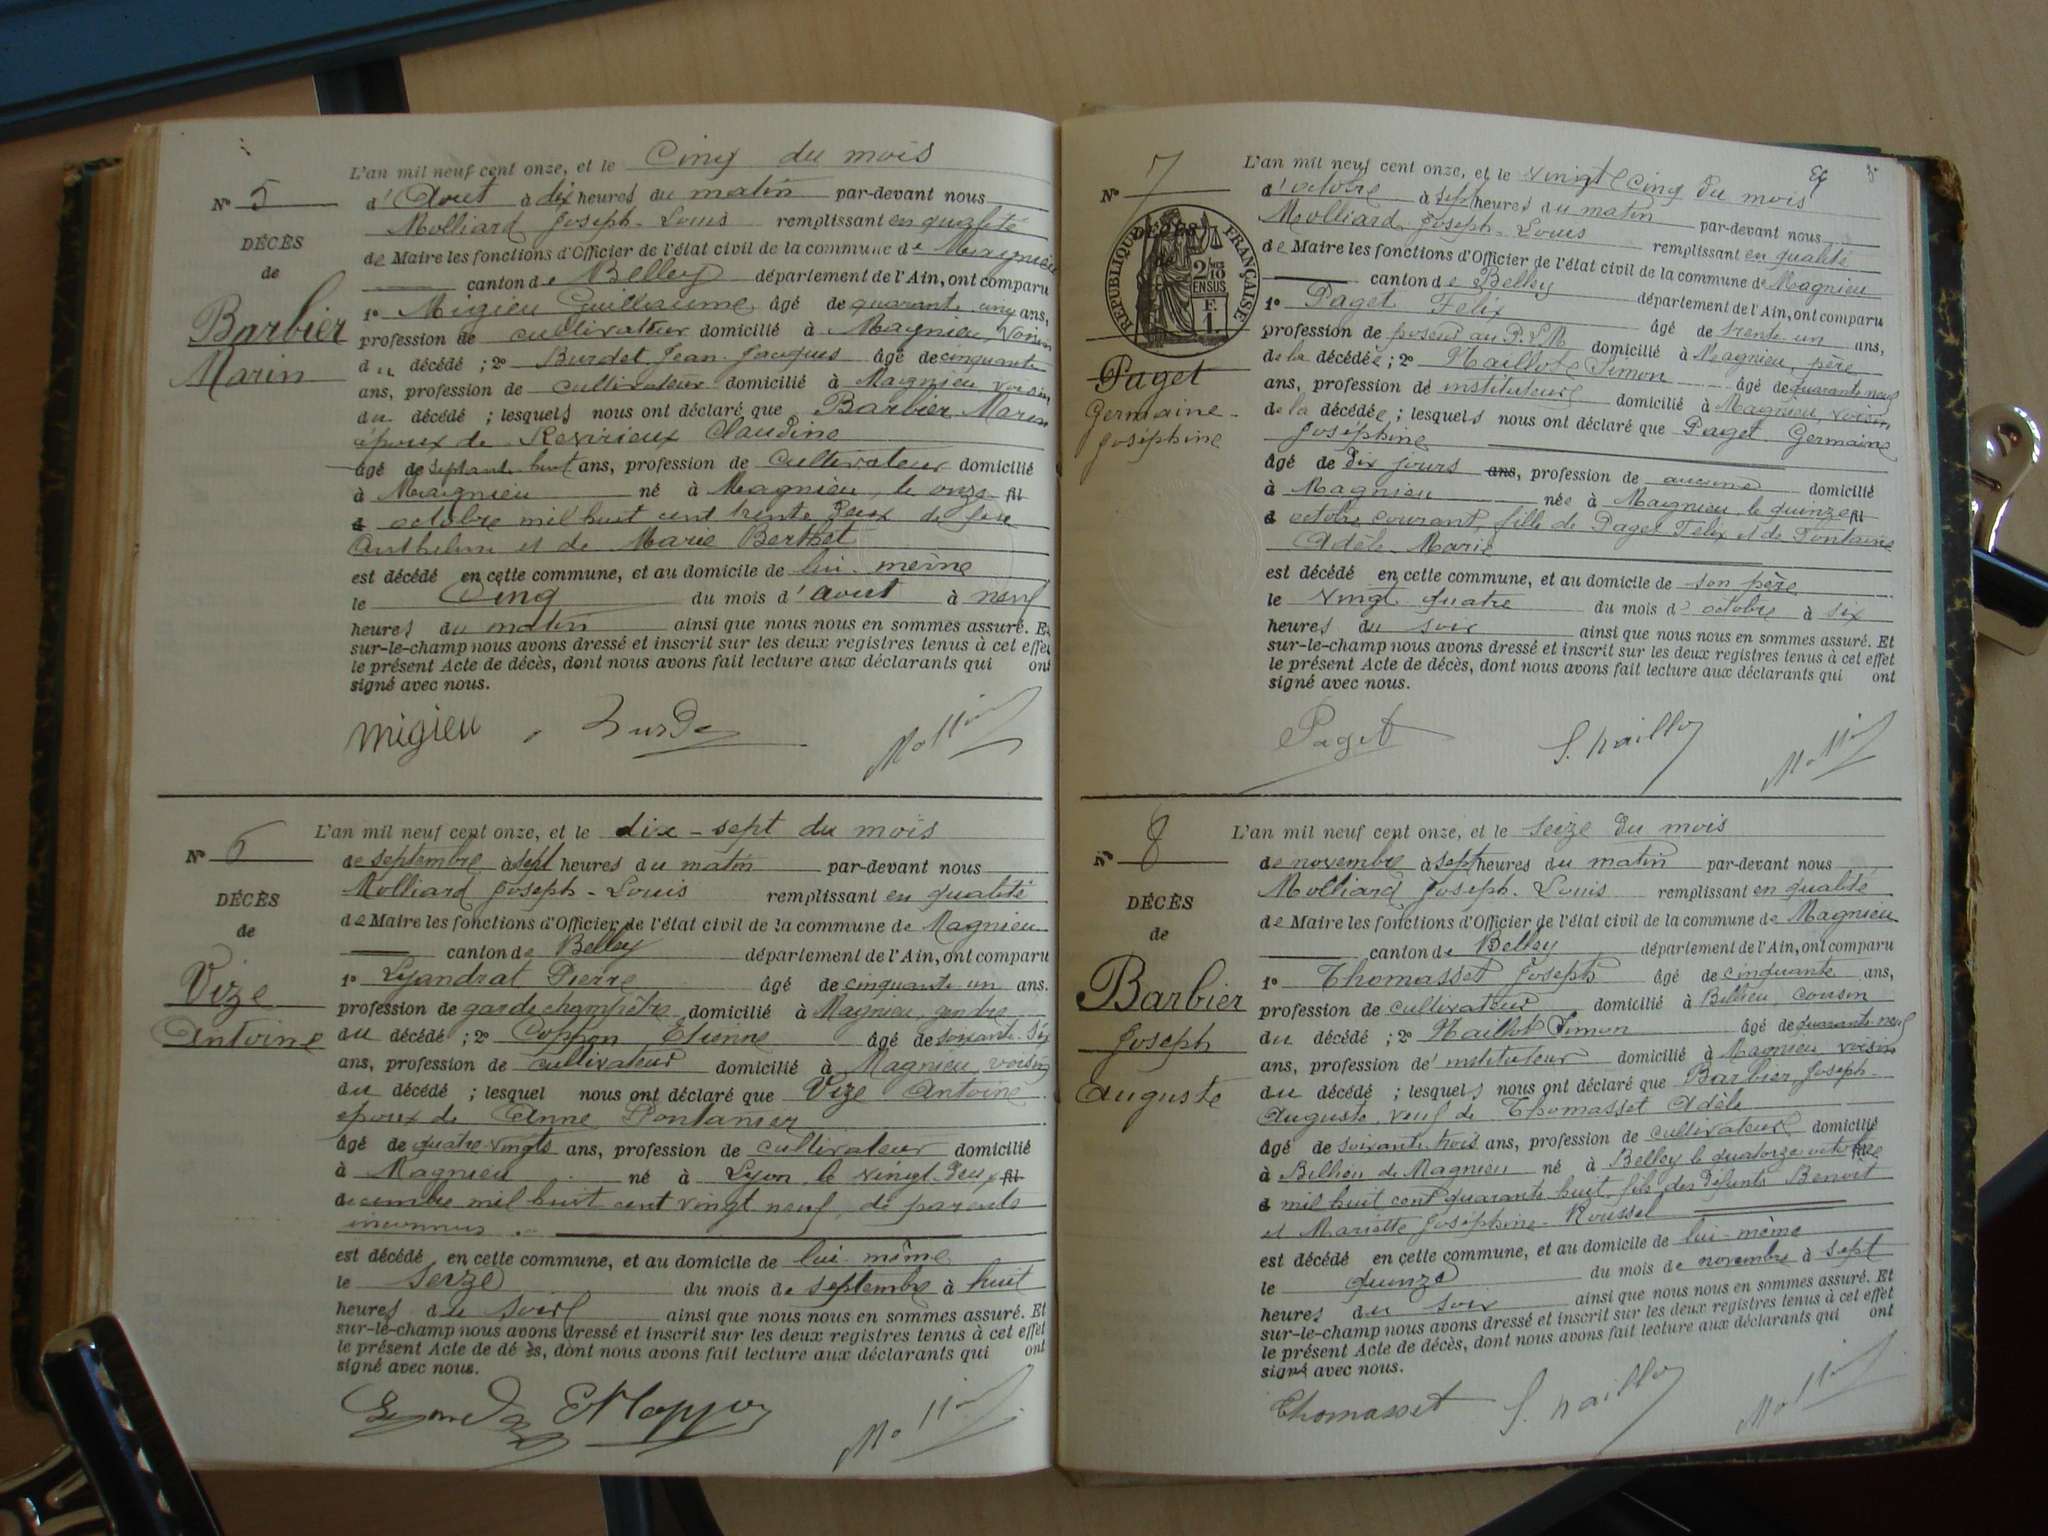 L'an mil neuf cent onze, et le Cinq du mois
N° 5
d'Aout à dix heures du matin par-devant nous
Molliard Joseph-Louis remplissant en qualité
DÉCÈS
de Maire les fonctions d'Officier de l'état civil de la commune de Magnieu
de
canton de Belley département de l'Ain, ont comparu
1° Migieu Guillaume âgé de quarante-un ans,
Barbier
profession de cultivateur domicilié à Magnieu, voisin
du décédé ; 2° Burdet Jean-Jacques âgé de cinquante
Marin
ans, profession de cultivateur domicilié à Magnieu voisin
du décédé ; lesquels nous ont déclaré que Barbier Marin
époux de Revirieux Claudine
âgé de septante huit ans, profession de cultivateur domicilié
à Magnieu né à Magnieu, le onze fil
d octobre mil huit cent trente deux de feu
Anthelme et de Marie Berthet
est décédé en cette commune, et au domicile de lui-même
le Cinq du mois d'aout à neuf
heures du matin ainsi que nous nous en sommes assuré. Et
sur-le-champ nous avons dressé et inscrit sur les deux registres tenus à cet effet
le présent Acte de décès, dont nous avons fait lecture aux déclarants qui ont
signé avec nous.
migieu Burdet
L'an mil neuf cent onze, et le dix-sept du mois
N° 6
de septembre à sept heures du matin par-devant nous
Molliard Joseph-Louis remplissant en qualité
DÉCÈS
de Maire les fonctions d'Officier de l'état civil de la commune de Magnieu
de
canton de Belley département de l'Ain, ont comparu
Vize
1° Lyandrat Pierre âgé de cinquante un ans.
profession de garde champêtre domicilié à Magnieu, gendre
Antoine
du décédé ; 2° Coppon Etienne âgé de soixante-six
ans, profession de cultivateur domicilié à Magnieu, voisin
du décédé ; lesquel nous ont déclaré que Vize Antoine
époux de Anne Pontanier
âgé de quatre-vingts ans, profession de cultivateur domicilié
à Magnieu né à Lyon le vingt-deux fil
décembre mil huit cent vingt neuf, de parents
inconnus
est décédé en cette commune, et au domicile de lui-même
le seize du mois de septembre à huit
heures du soir ainsi que nous nous en sommes assuré. Et
sur-le-champ nous avons dressé et inscrit sur les deux registres tenus à cet effet
le présent Acte de décès, dont nous avons fait lecture aux déclarants qui ont
signé avec nous.
L'an mil neuf cent onze, et le vingt cinq du mois
N° 7
d'octobre à sept heures du matin par-devant nous
Molliard Joseph-Louis remplissant en qualité
de Maire les fonctions d'Officier de l'état civil de la commune de Magnieu
RÉPUBLIQUE FRANÇAISE
2/10 EN SUS
F. 1
canton de Belley département de l'Ain, ont comparu
1° Paget Felix âgé de trente-un ans,
profession de poseur au P.L.M domicilié à Magnieu, père
Paget
de la décédée ; 2° Naillot Simon âgé de quarante neuf
ans, profession de instituteur domicilié à Magnieu, voisin
Germaine-
Joséphine
de la décédée ; lesquels nous ont déclaré que Paget Germaine
Joséphine
âgé de dix jours ans, profession de aucune domicilié
à Magnieu née à Magnieu, le quinze fil
d octobre courant, fille de Paget Félix et de Fontaine
Adèle-Marie
est décédé en cette commune, et au domicile de son père
le vingt quatre du mois d'octobre à six
heures du soir ainsi que nous nous en sommes assuré. Et
sur-le-champ nous avons dressé et inscrit sur les deux registres tenus à cet effet
le présent Acte de décès, dont nous avons fait lecture aux déclarants qui ont
signé avec nous.
Paget S. Naillot
L'an mil neuf cent onze, et le seize du mois
N° 8
de novembre à sept heures du matin par-devant nous
Molliard Joseph-Louis remplissant en qualité
DÉCÈS
de Maire les fonctions d'Officier de l'état civil de la commune de Magnieu
de
canton de Belley département de l'Ain, ont comparu
Barbier
1° Thomasset Joseph âgé de cinquante ans,
profession de cultivateur domicilié à Billieu cousin
Joseph
du décédé ; 2° Naillot Simon âgé de quarante-neuf
ans, profession d'instituteur domicilié à Magnieu voisin
Auguste
du décédé ; lesquels nous ont déclaré que Barbier Joseph-
Auguste, veuf de Thomasset Adèle
âgé de soixante trois ans, profession de cultivateur domicilié
à Billieu de Magnieu né à Belley le quatorze octobre
d mil huit cent quarante huit fils des défunts Benoit
et Mariette Joséphine Roussel
est décédé en cette commune, et au domicile de lui-même
le quinze du mois de novembre à sept
heures du soir ainsi que nous nous en sommes assuré. Et
sur-le-champ nous avons dressé et inscrit sur les deux registres tenus à cet effet
le présent Acte de décès, dont nous avons fait lecture aux déclarants qui ont
signé avec nous.
Thomasset S. Naillot